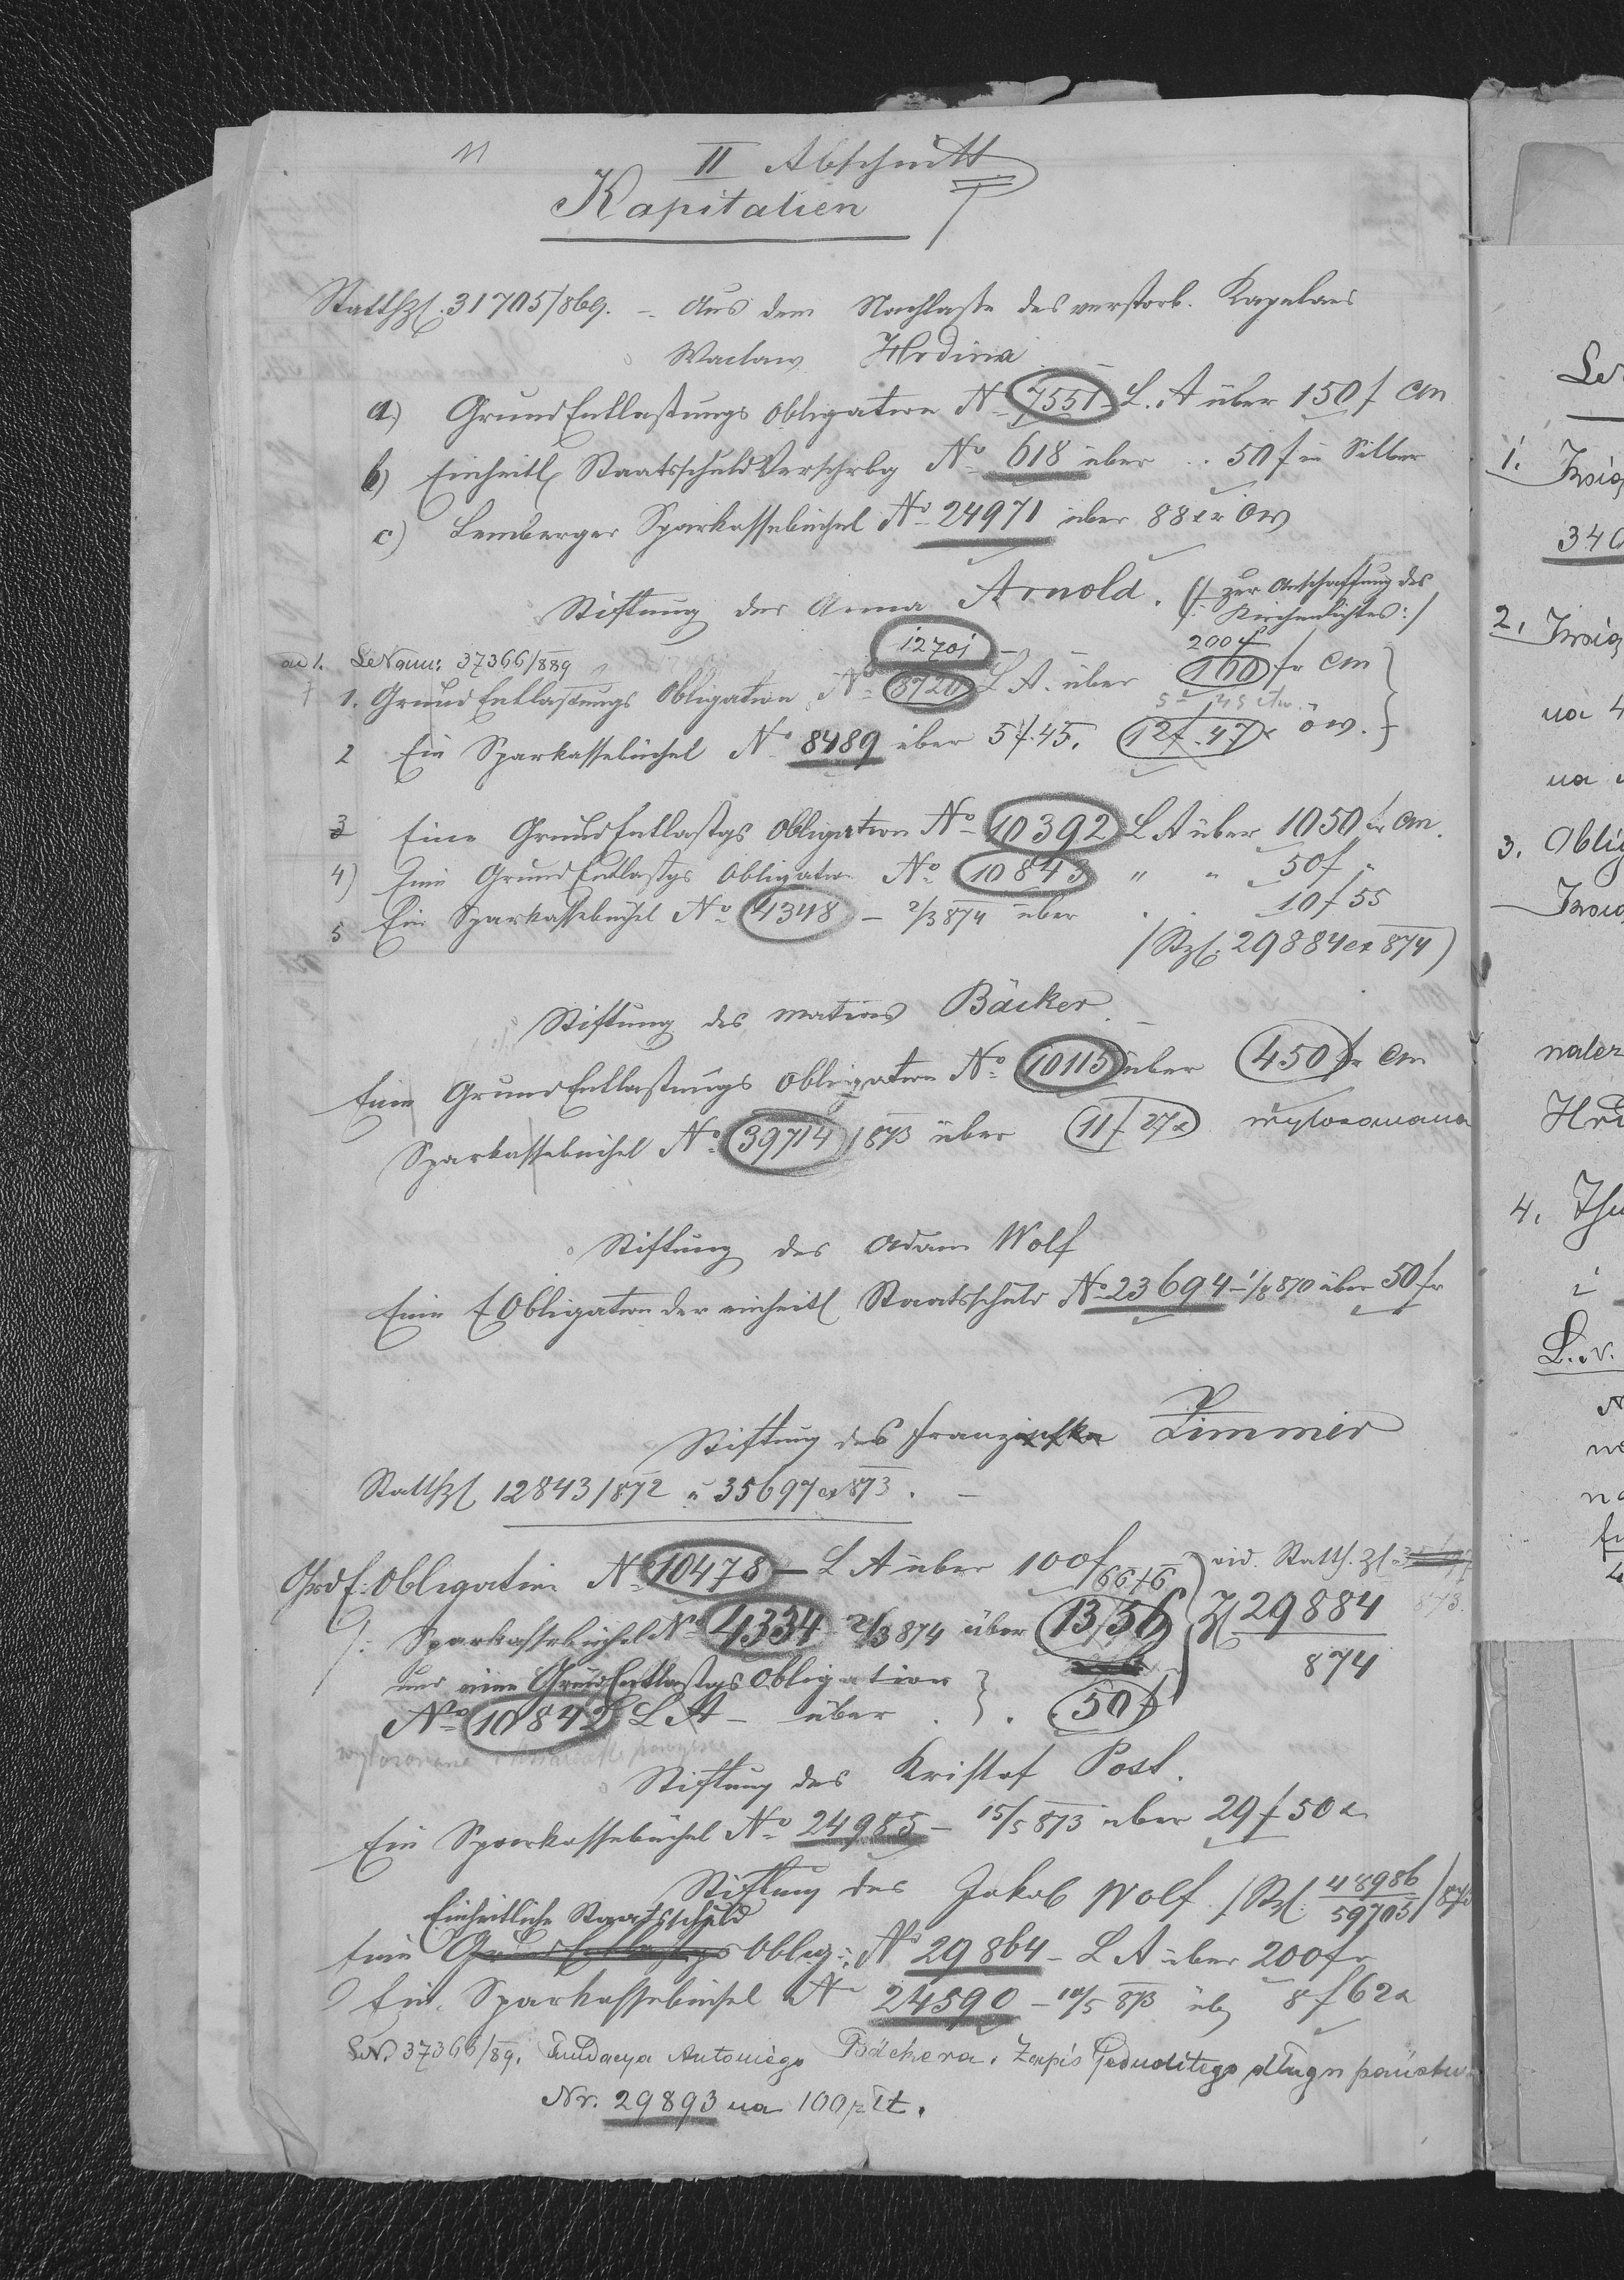 11
II Abschnitt
Kapitalien
Statthzl. 31705/869. – Aus dem Nachlaße des verstorb. Kapelans
Waclaw Hodina
a.) GrundEntlaßungs Obligation No 7551 L. A über 150 f CM
b) Einheitl Staatsschuld Verschrbg No 618 über .. 50 f in Silber
c) Lemberger Sparkassebüchel No 24971 über 88 xr ÖW
Stiftung der Anna Arnold. (/: zur Anschaffung des
Kirchenlichtes :/
12701 200 f
ad 1. 37366/889
1. GrundEntlaßungs Obligation No 8720 L A. über 160 fr CM
5 45
2 Ein Sparkassebüchel No 8489 über 5 f. 45. 12 f. 47 x öw.
3 Eine GrundEntlaßgs Obligation No 10392 L A über 1050 fr CM.
4) Eine GrundEntlaßgs Obligation No 10843 " " 50 f "
5 Ein Sparkassebüchel No 4348 – 2/3 874 über . . 10 f 55
/ Stzl. 29884 ex 874 )
Stiftung des Matias Bäcker.
Eine GrundEntlaßungs Obligation No 10115 über 450 fr CM
Sparkassebüchel No 39714 / 873 über 11 f 27 x wylosowana
Stiftung des Adam Wolf
Eine Obligation der einheitl Staatsschuld No 23694 – 1/8 870 über 50 fr
Stiftung des Franziska Zimmer
Statthzl 12843/872 u 35697 ex 873. –
GrdE: Obligation No 10478 – L A über 100 f vid. Statth. Zl
66 76
/: Sparkassebüchel No 4334 2/3 874 über 13/36 Zl 29884
874
und eine GrundEntlaßgs Obligation
No 10842 L A – über . . 50 f
wylosowana
Stiftung des Kristof Post.
Ein Sparkassebüchel No 24985 – 15/5 873 über 29 f 50 x
Stiftung des Jakob Wolf / Stzl: 48986
59705
Einheitliche Staatsschuld
Eine GrundEntlaßgs Oblig: No 29864 – L A über 200 fr
Ein Sparkassebüchel No 24590 – 10/5 873 üb 8 f 62 x
37366/89. Fundacya Antoniego Bäckera. Zapis jednolitego długu państw.
Nr. 29893 na 100 zł.
1.
340
2.
3. Oblig
należ
4.